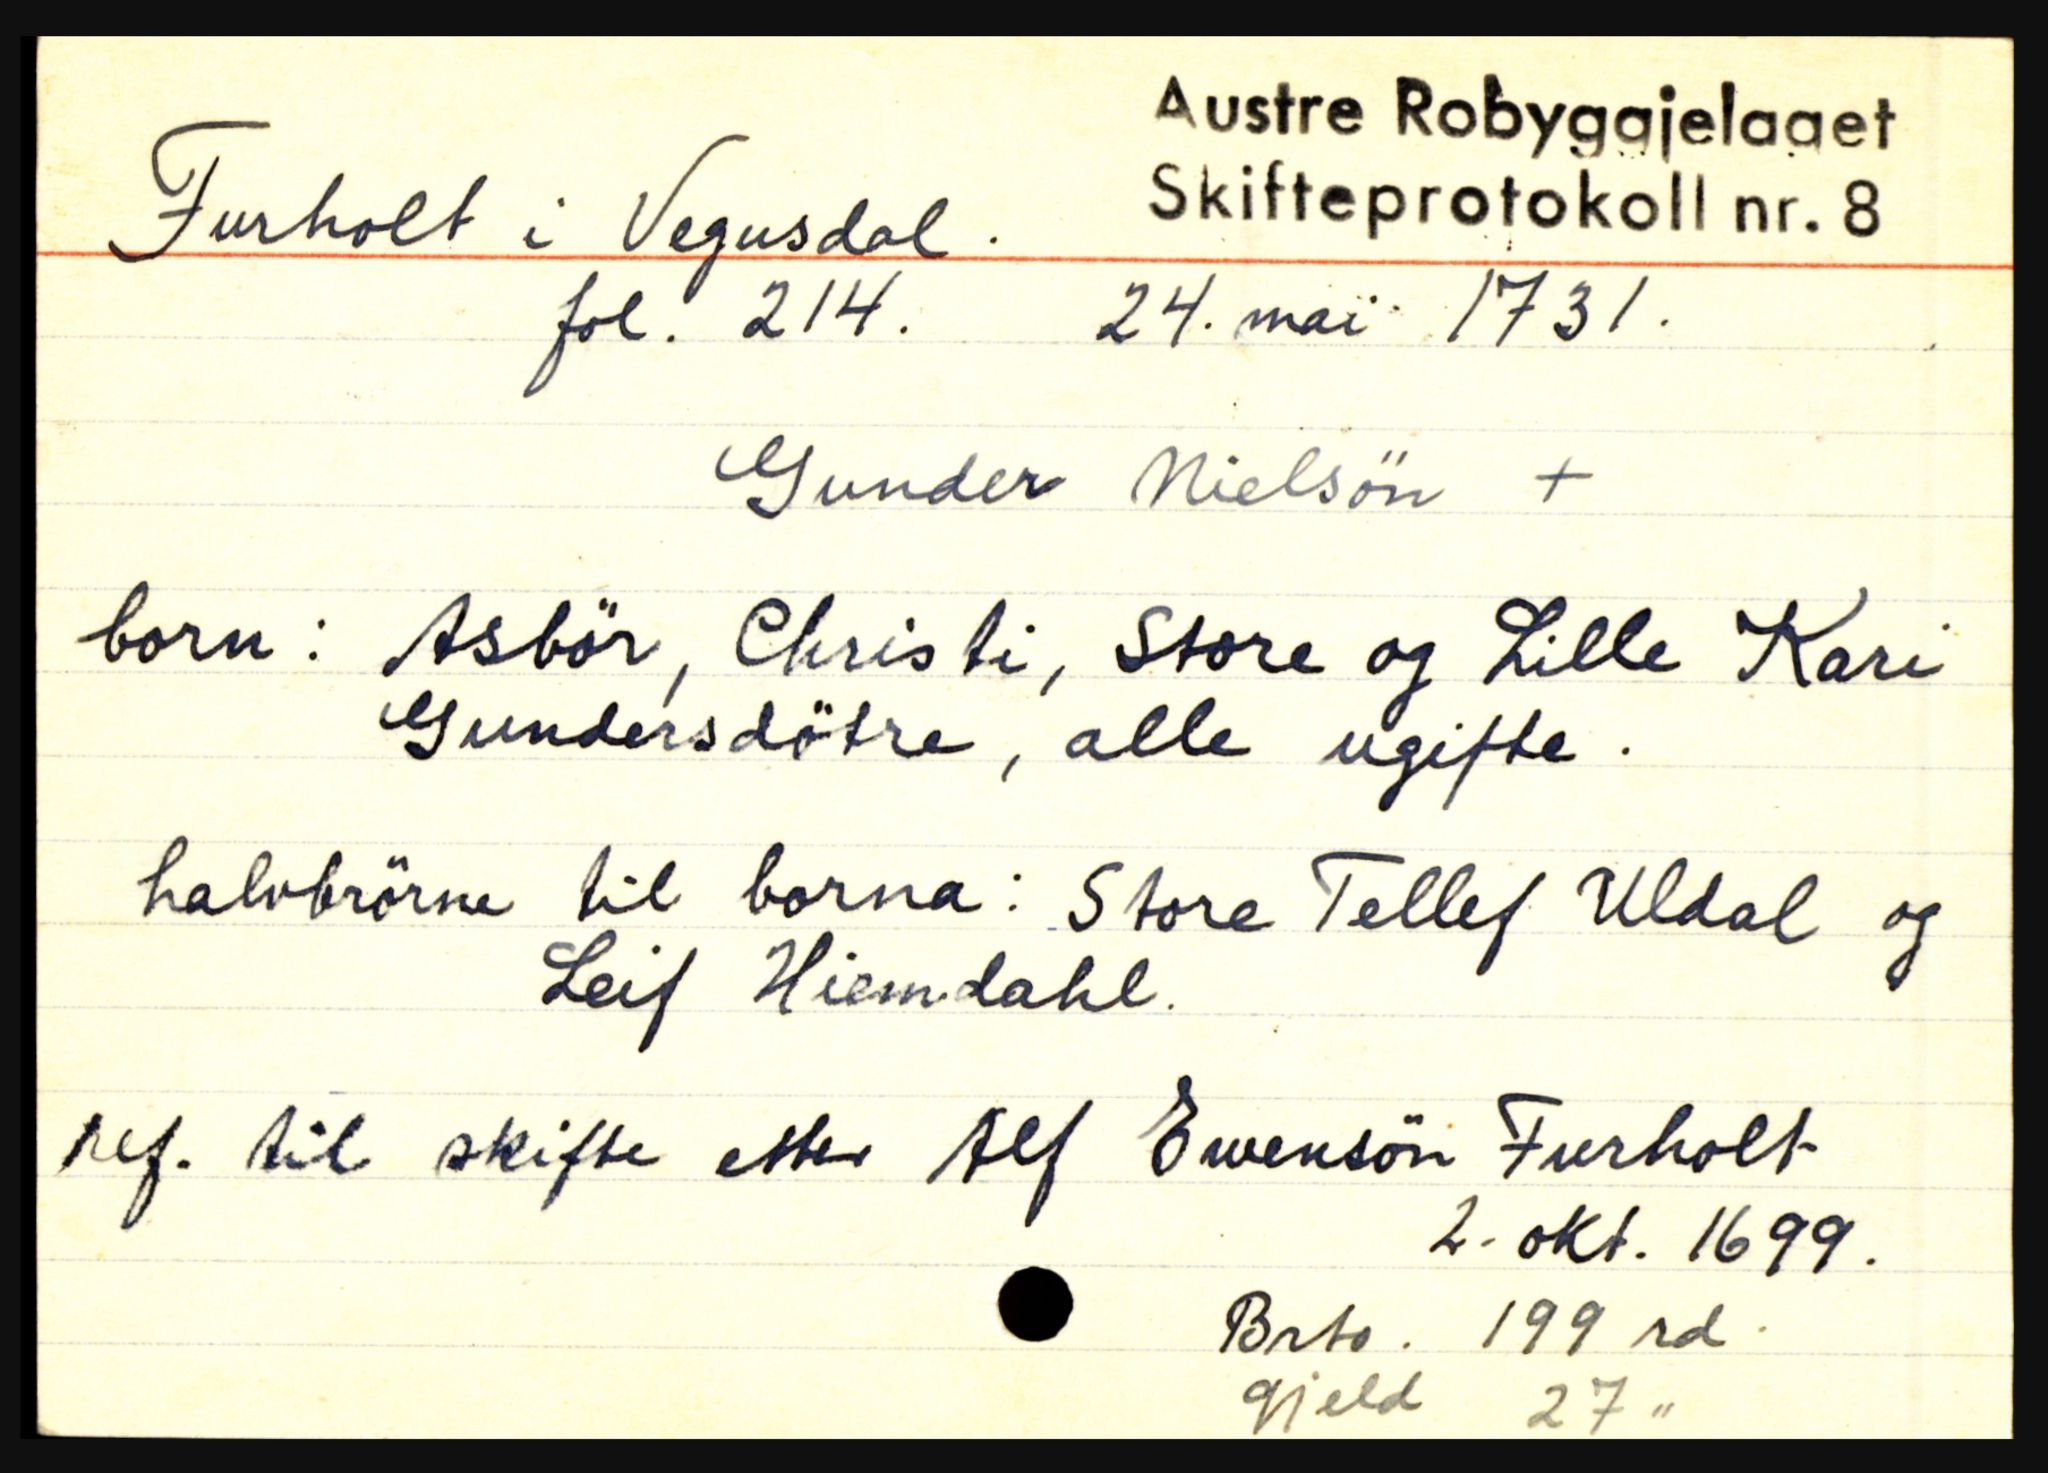 Austre Robyggjelaget
Skifteprotokoll nr. 8
Furholt i Vegusdal.
fol. 214. 24. mai 1731.
Gunder Nielsön +
born: Asbör, Christi, Store og Lille Kari
Gundersdötre, alle ugifte.
halvbrörne til borna: Store Tellef Uldal og
Leif Hiemdahl.
ref. til skifte etter Alf Ewensön Furholt
2. okt. 1699.
Brto. 199 rd.
gjeld 27 "